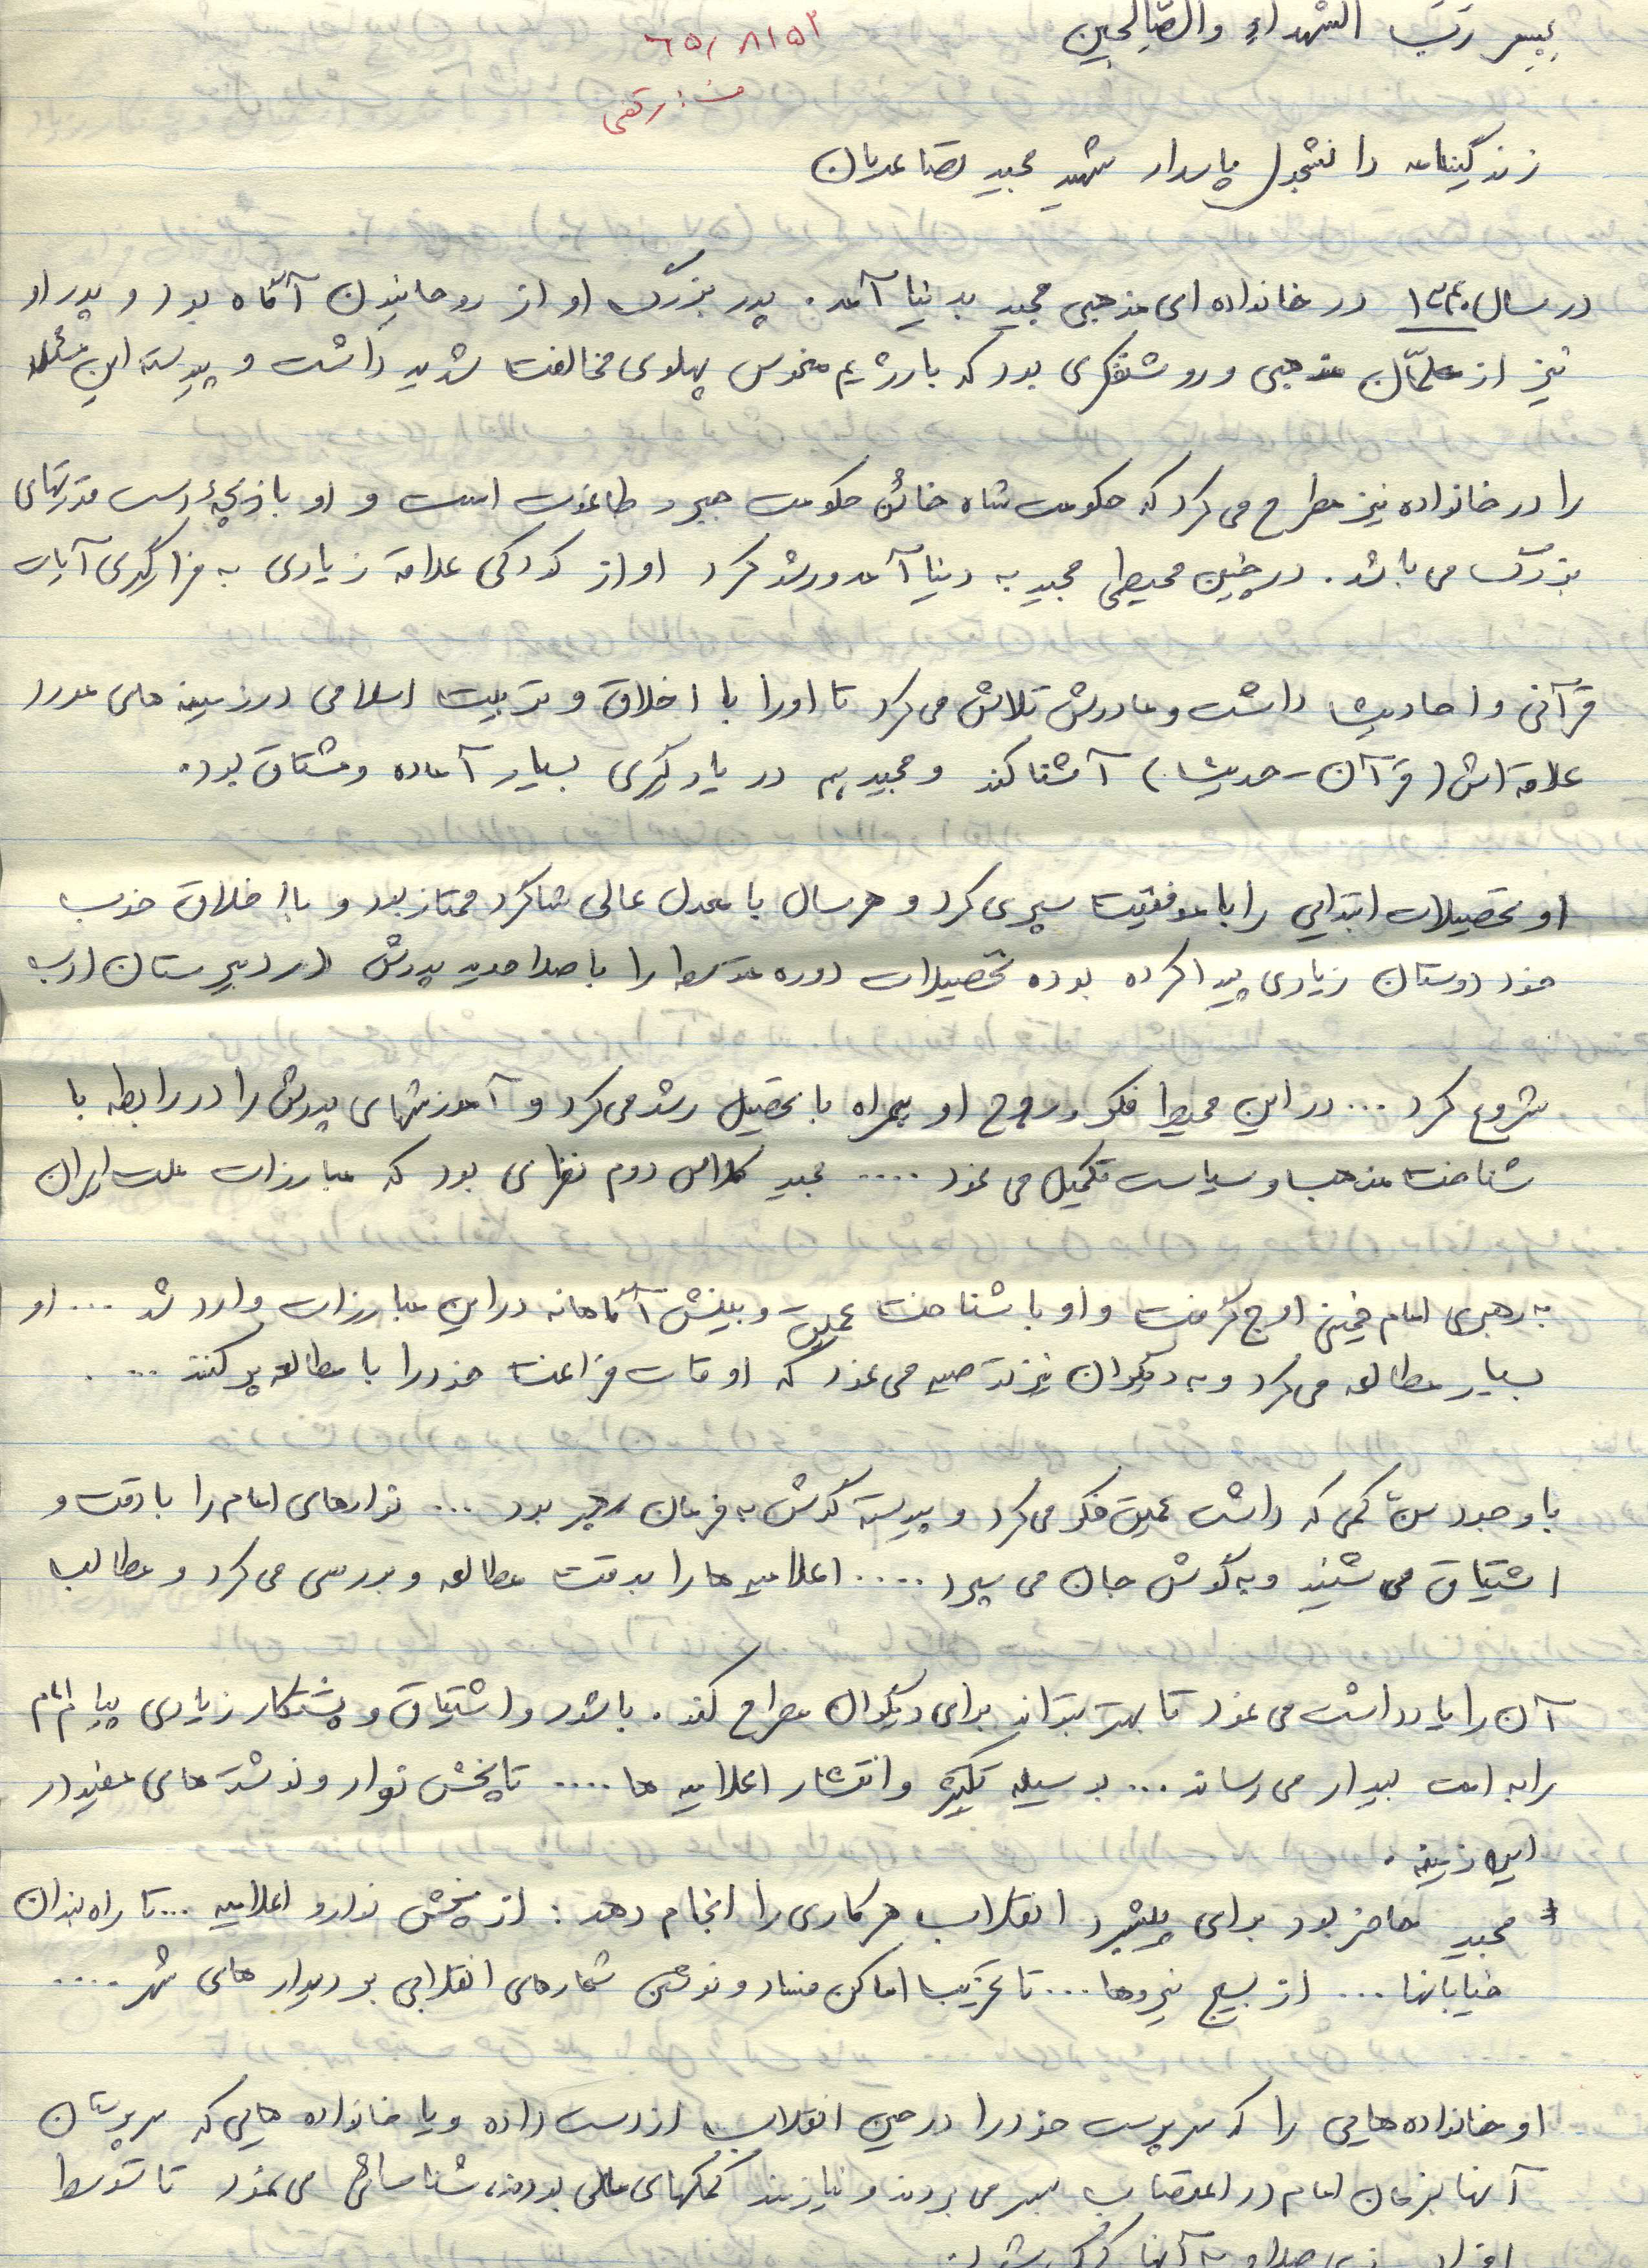 بسم رب الشهداء والصّالحین
۶۵/۸/۵۳
زندگینامه دانشجوی پاسدار شهید مجید
در سال ۱۳۴۰ در خانواده ای مذهبی مجید بدنیا آمد . پدر بزرگ او از روحانیون آگاه بود و پدر او
نیز از معلمان مذهبی و روشنفکری بود که با رژیم منحوس پهلوی مخالفت شدید داشت و پیوسته این مسئله
را در خانواده نیز مطرح می کرد که حکومت شاه خائن حکومت جبر و طاغوت است و او بازیچهٔ دست قدرتهای
بزرگ می باشد . در چنین محیطی مجید به دنیا آمد و رشد کرد او از کودکی علاقه زیادی به فراگیری آیات
قرآنی و احادیث داشت و مادرش تلاش می کرد تا او را با اخلاق و تربیت اسلامی در زمینه های مورد
علاقه اش (قرآن - حدیث) آشنا کند و مجید هم در یادگیری بسیار آماده و مشتاق بود .
او تحصیلات ابتدایی را با موفقیت سپری کرد و هر سال با معدل عالی شاگرد ممتاز بود و با اخلاق خوب
خود دوستان زیادی پیدا کرده بوده تحصیلات دوره متوسطه را با صلاحدید پدرش در دبیرستان ادب
شروع کرد ... در این محیط فکر و روح او همراه با تحصیل رشد می کرد و آموزشهای پدرش را در رابطه با
شناخت مذهب و سیاست تکمیل می نمود .... مجید کلاس دوم نظری بود که مبارزات ملت ایران
به رهبری امام خمینی اوج گرفت و او با شناخت عمیق و بینش آگاهانه در این مبارزات وارد شد ... او
بسیار مطالعه می کرد و به دیگران نیز توصیه می نمود که اوقات فراغت خود را با مطالعه پر کنند ... .
با وجود سنّ کمی که داشت عمیق فکر می کرد و پیوسته گوش به فرمان رهبر بود ... نوارهای امام را با دقت و
اشتیاق می شنید و به گوش جان می سپرد .... اعلامیه ها را بدقت مطالعه و بررسی می کرد و مطالب
آن را یادداشت می نمود تا بهتر بتواند برای دیگران مطرح کند . با شور و اشتیاق و پشتکار زیادی پیام امام
را به امت بیدار می رساند ... بوسیله تکثیر و انتشار اعلامیه ها .... تا پخش نوار و نوشته های مفید در
این زمینه .
* مجید حاضر بود برای پیشبرد انقلاب هر کاری را انجام دهد : از پخش نوار و اعلامیه ... تا راه بندان
خیابانها ... از بسیج نیروها ... تا تخریب اماکن فساد و نوشتن شعارهای انقلابی بر دیوار های شهر ....
او خانواده هایی را که سرپرست خود را در حین انقلاب از دست داده و یا خانواده هایی که سرپرستان
آنها بفرمان امام در اعتصاب بسر می بردند و نیازمند کمکهای مالی بودند، شناسائی می نمود تا توسط